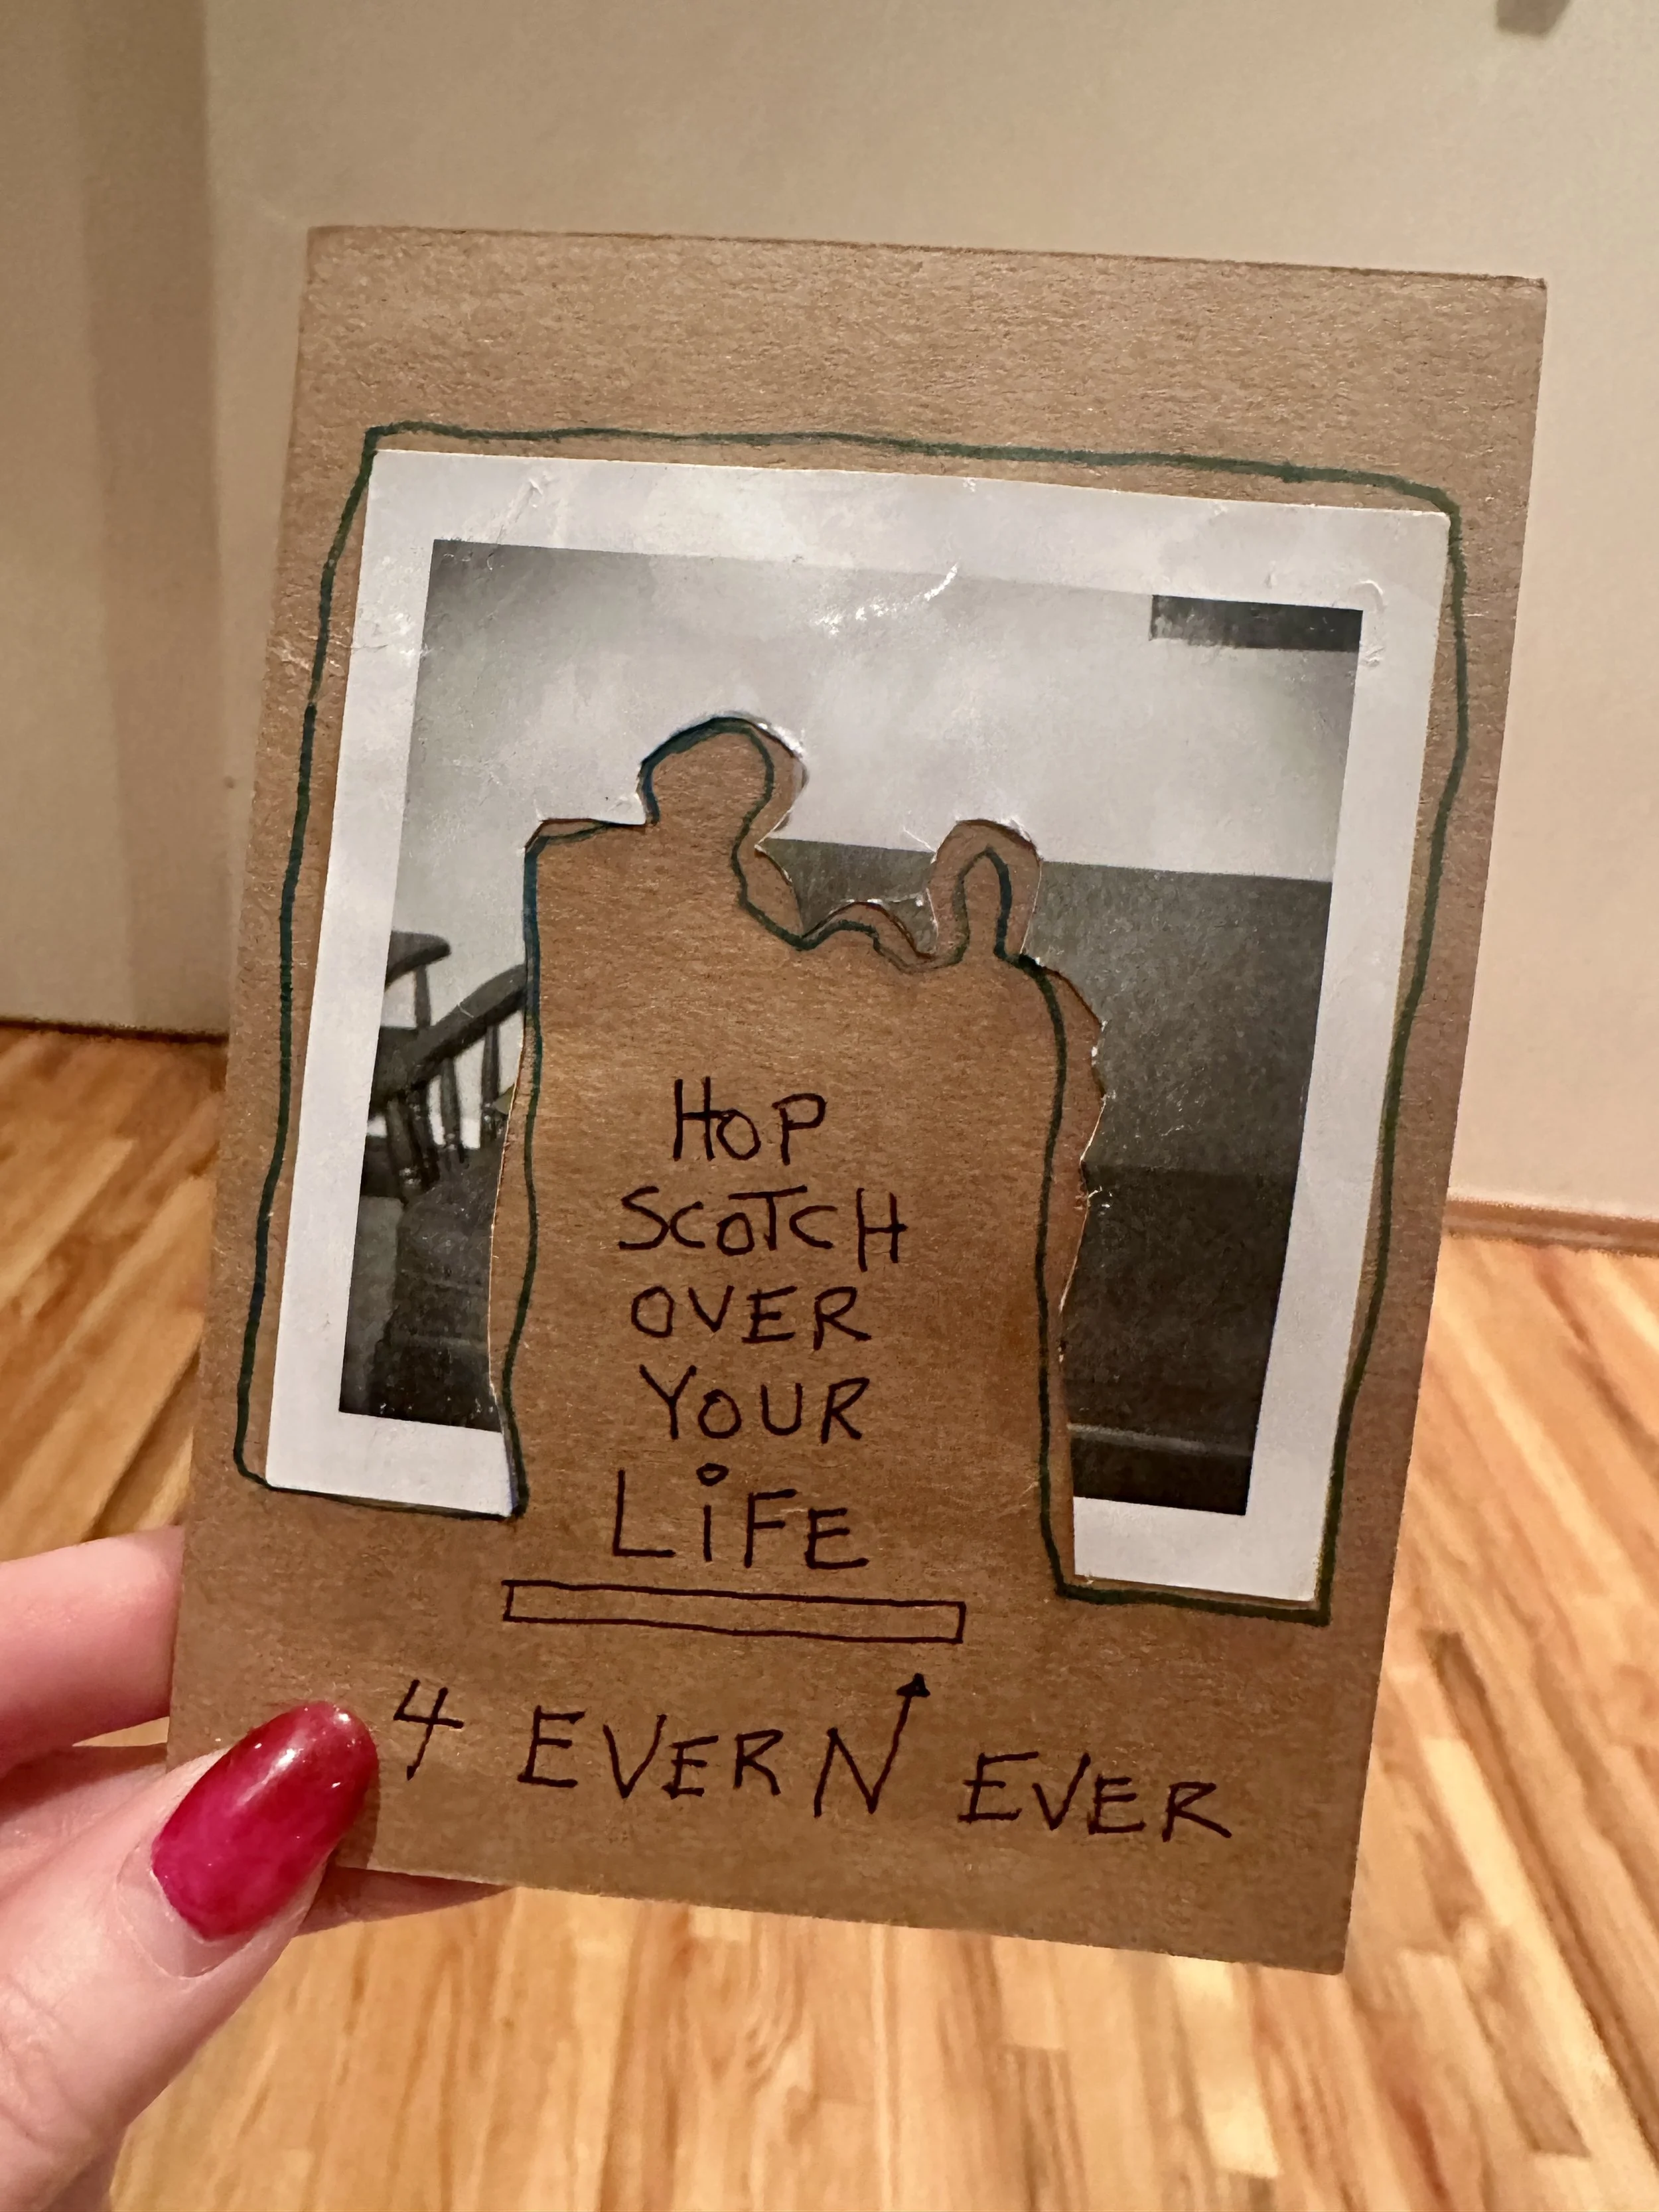 HOP
SCOTCH
OVER
YOUR
LiFE
4 EVER N EVER